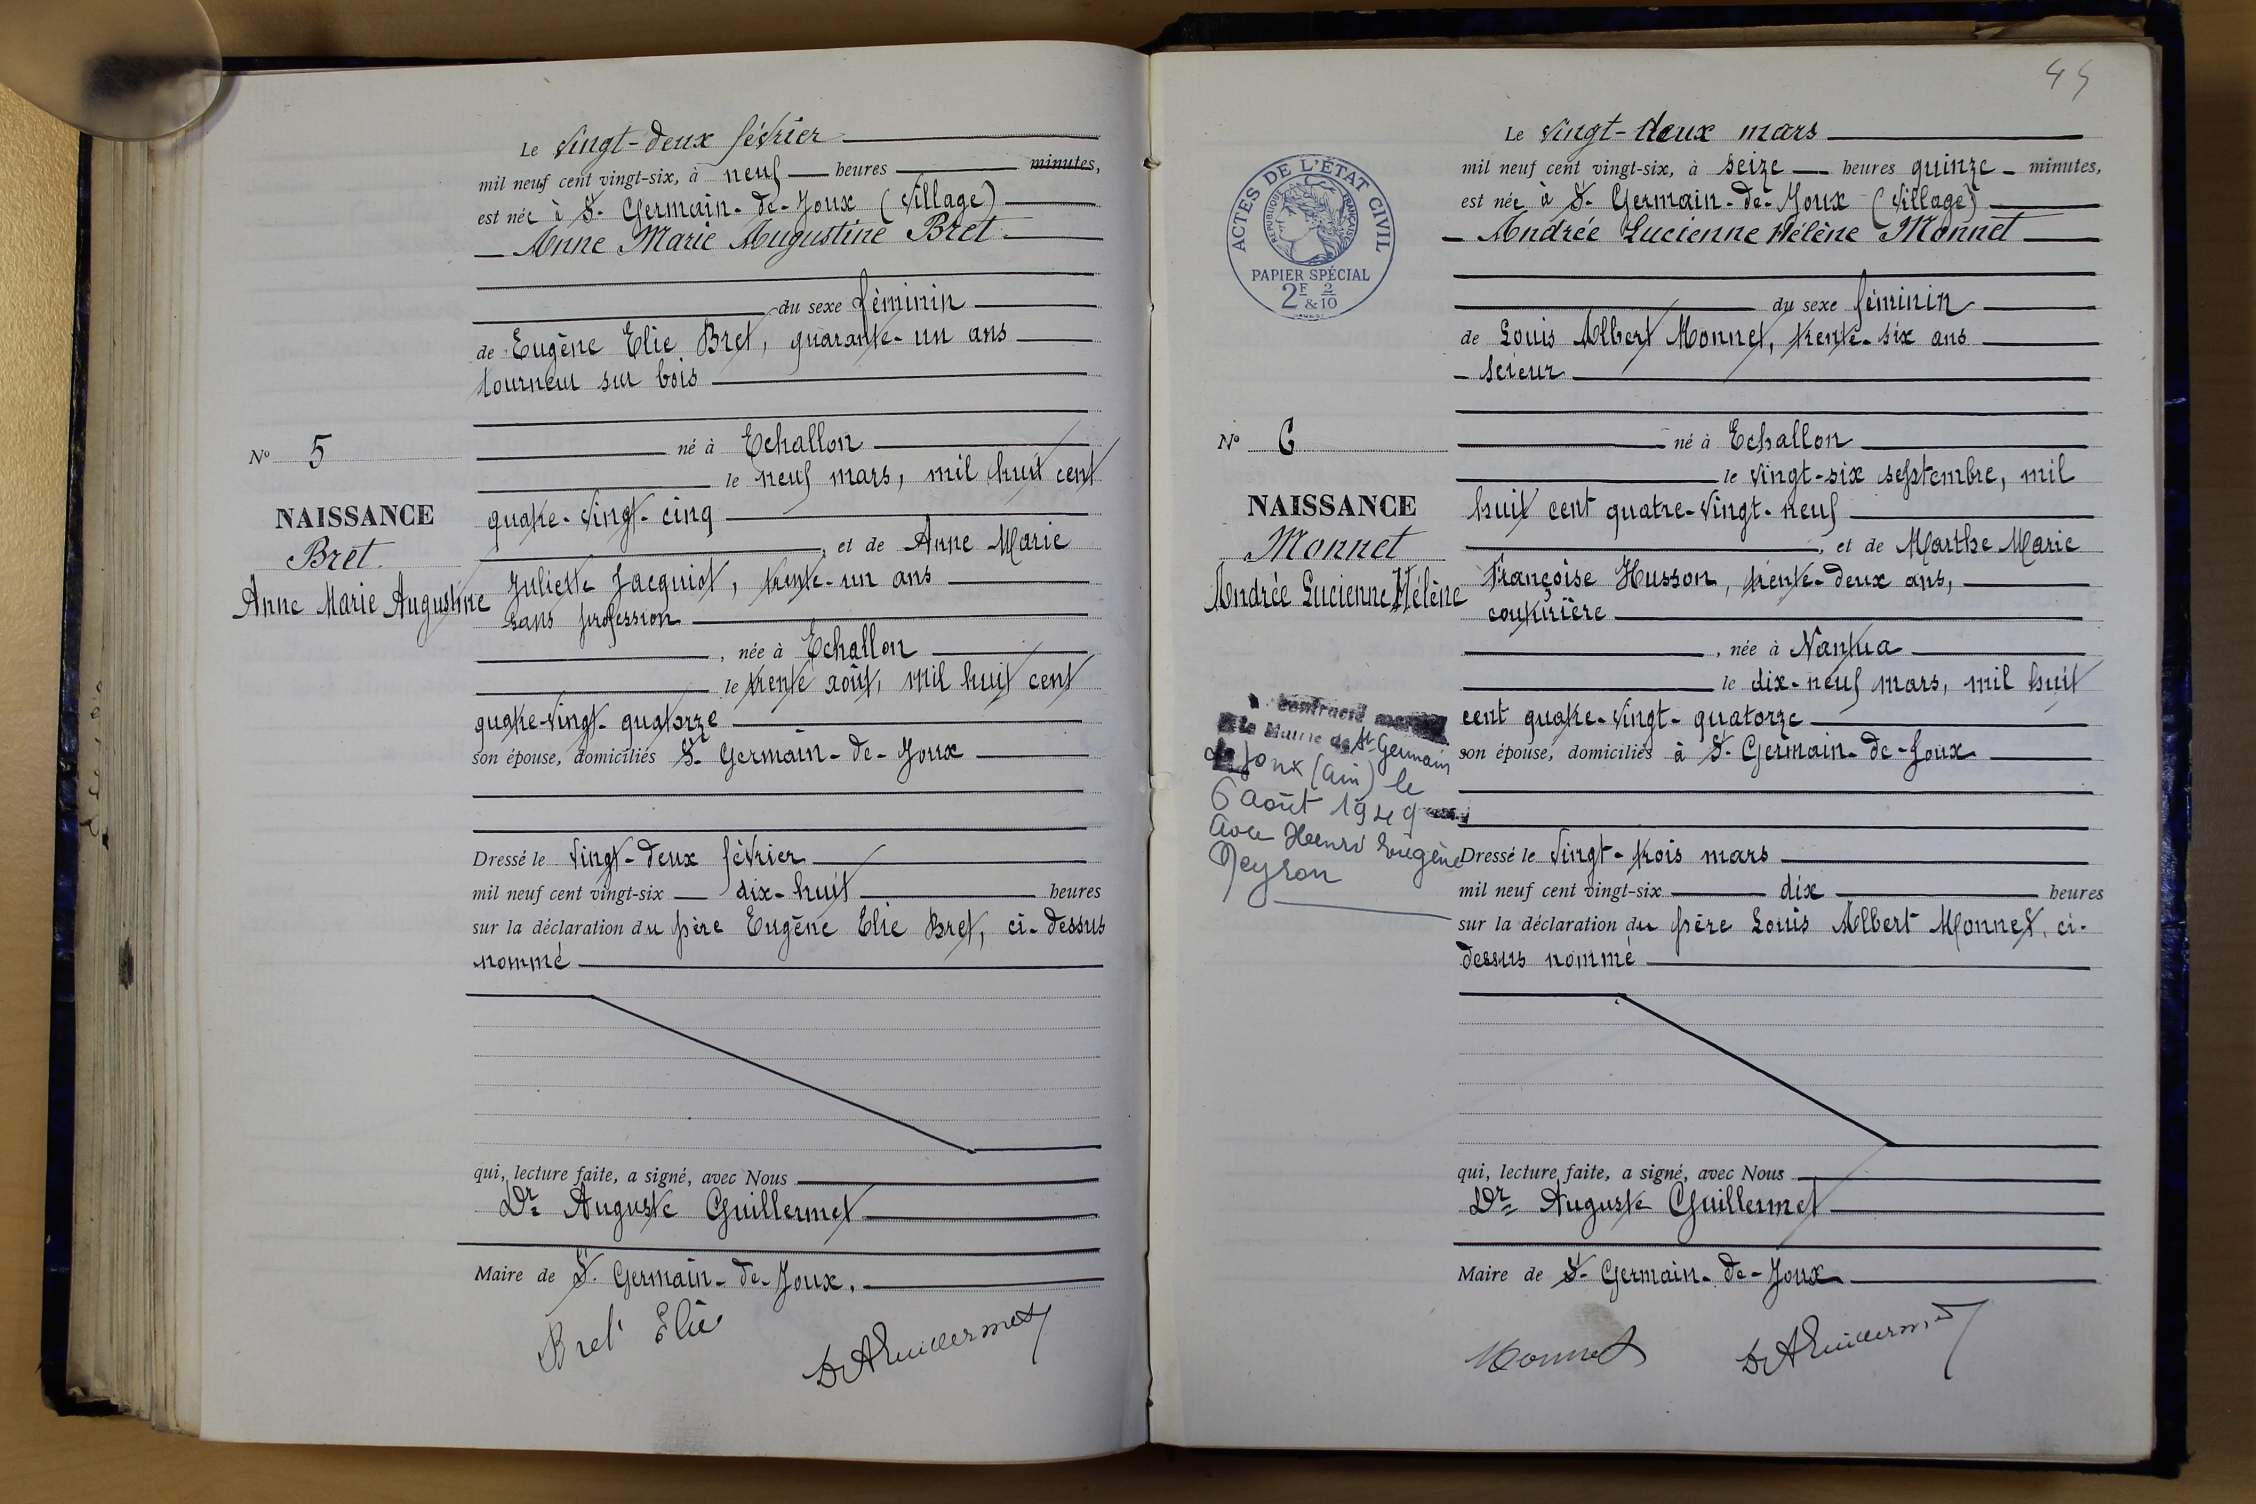 Le vingt-deux février
mil neuf cent vingt-six, à neuf heures minutes,
est née à St Germain-de-Joux (village)
Anne Marie Augustine Bret
du sexe féminin
de Eugène Elie Bret, quarante-un ans
tourneur sur bois
né à Echallon
le neuf mars, mil huit cent
quatre-vingt-cinq
, et de Anne Marie
Juliette Jacquiot, trente-un ans
sans profession
, née à Echallon
le trente août, mil huit cent
quatre-vingt-quatorze
son épouse, domiciliés St Germain-de-Joux
Dressé le vingt-deux février
mil neuf cent vingt-six dix-huit heures
sur la déclaration du père Eugène Elie Bret, ci-dessus
nommé
qui, lecture faite, a signé, avec Nous
Dr Auguste Guillermet
Maire de St Germain-de-Joux.
Bret Elie
Dr AGuillermet
No 5
NAISSANCE
Bret
Anne Marie Augustine
Le vingt-deux mars
mil neuf cent vingt-six, à seize heures quinze minutes,
est née à St Germain-de-Joux (village)
Andrée Lucienne Hélène Monnet
du sexe féminin
de Louis Albert Monnet, trente-six ans
scieur
né à Echallon
le vingt-six septembre, mil
huit cent quatre-vingt-neuf
, et de Marthe Marie
Françoise Husson, trente-deux ans,
couturière
, née à Nantua
le dix-neuf mars, mil huit
cent quatre-vingt-quatorze
son épouse, domiciliés à St Germain-de-Joux
Dressé le vingt-trois mars
mil neuf cent vingt-six dix heures
sur la déclaration du père Louis Albert Monnet, ci-
dessus nommé
qui, lecture faite, a signé, avec Nous
Dr Auguste Guillermet
Maire de St Germain-de-Joux
Monnet
Dr AGuillermet
ACTES DE L'ÉTAT CIVIL
RÉPUBLIQUE FRANÇAISE
PAPIER SPÉCIAL
2F & 2/10
No 6
NAISSANCE
Monnet
Andrée Lucienne Hélène
A contracté
la Mairie de St Germain
de Joux (Ain) le
6 août 1949
avec Henri Eugène